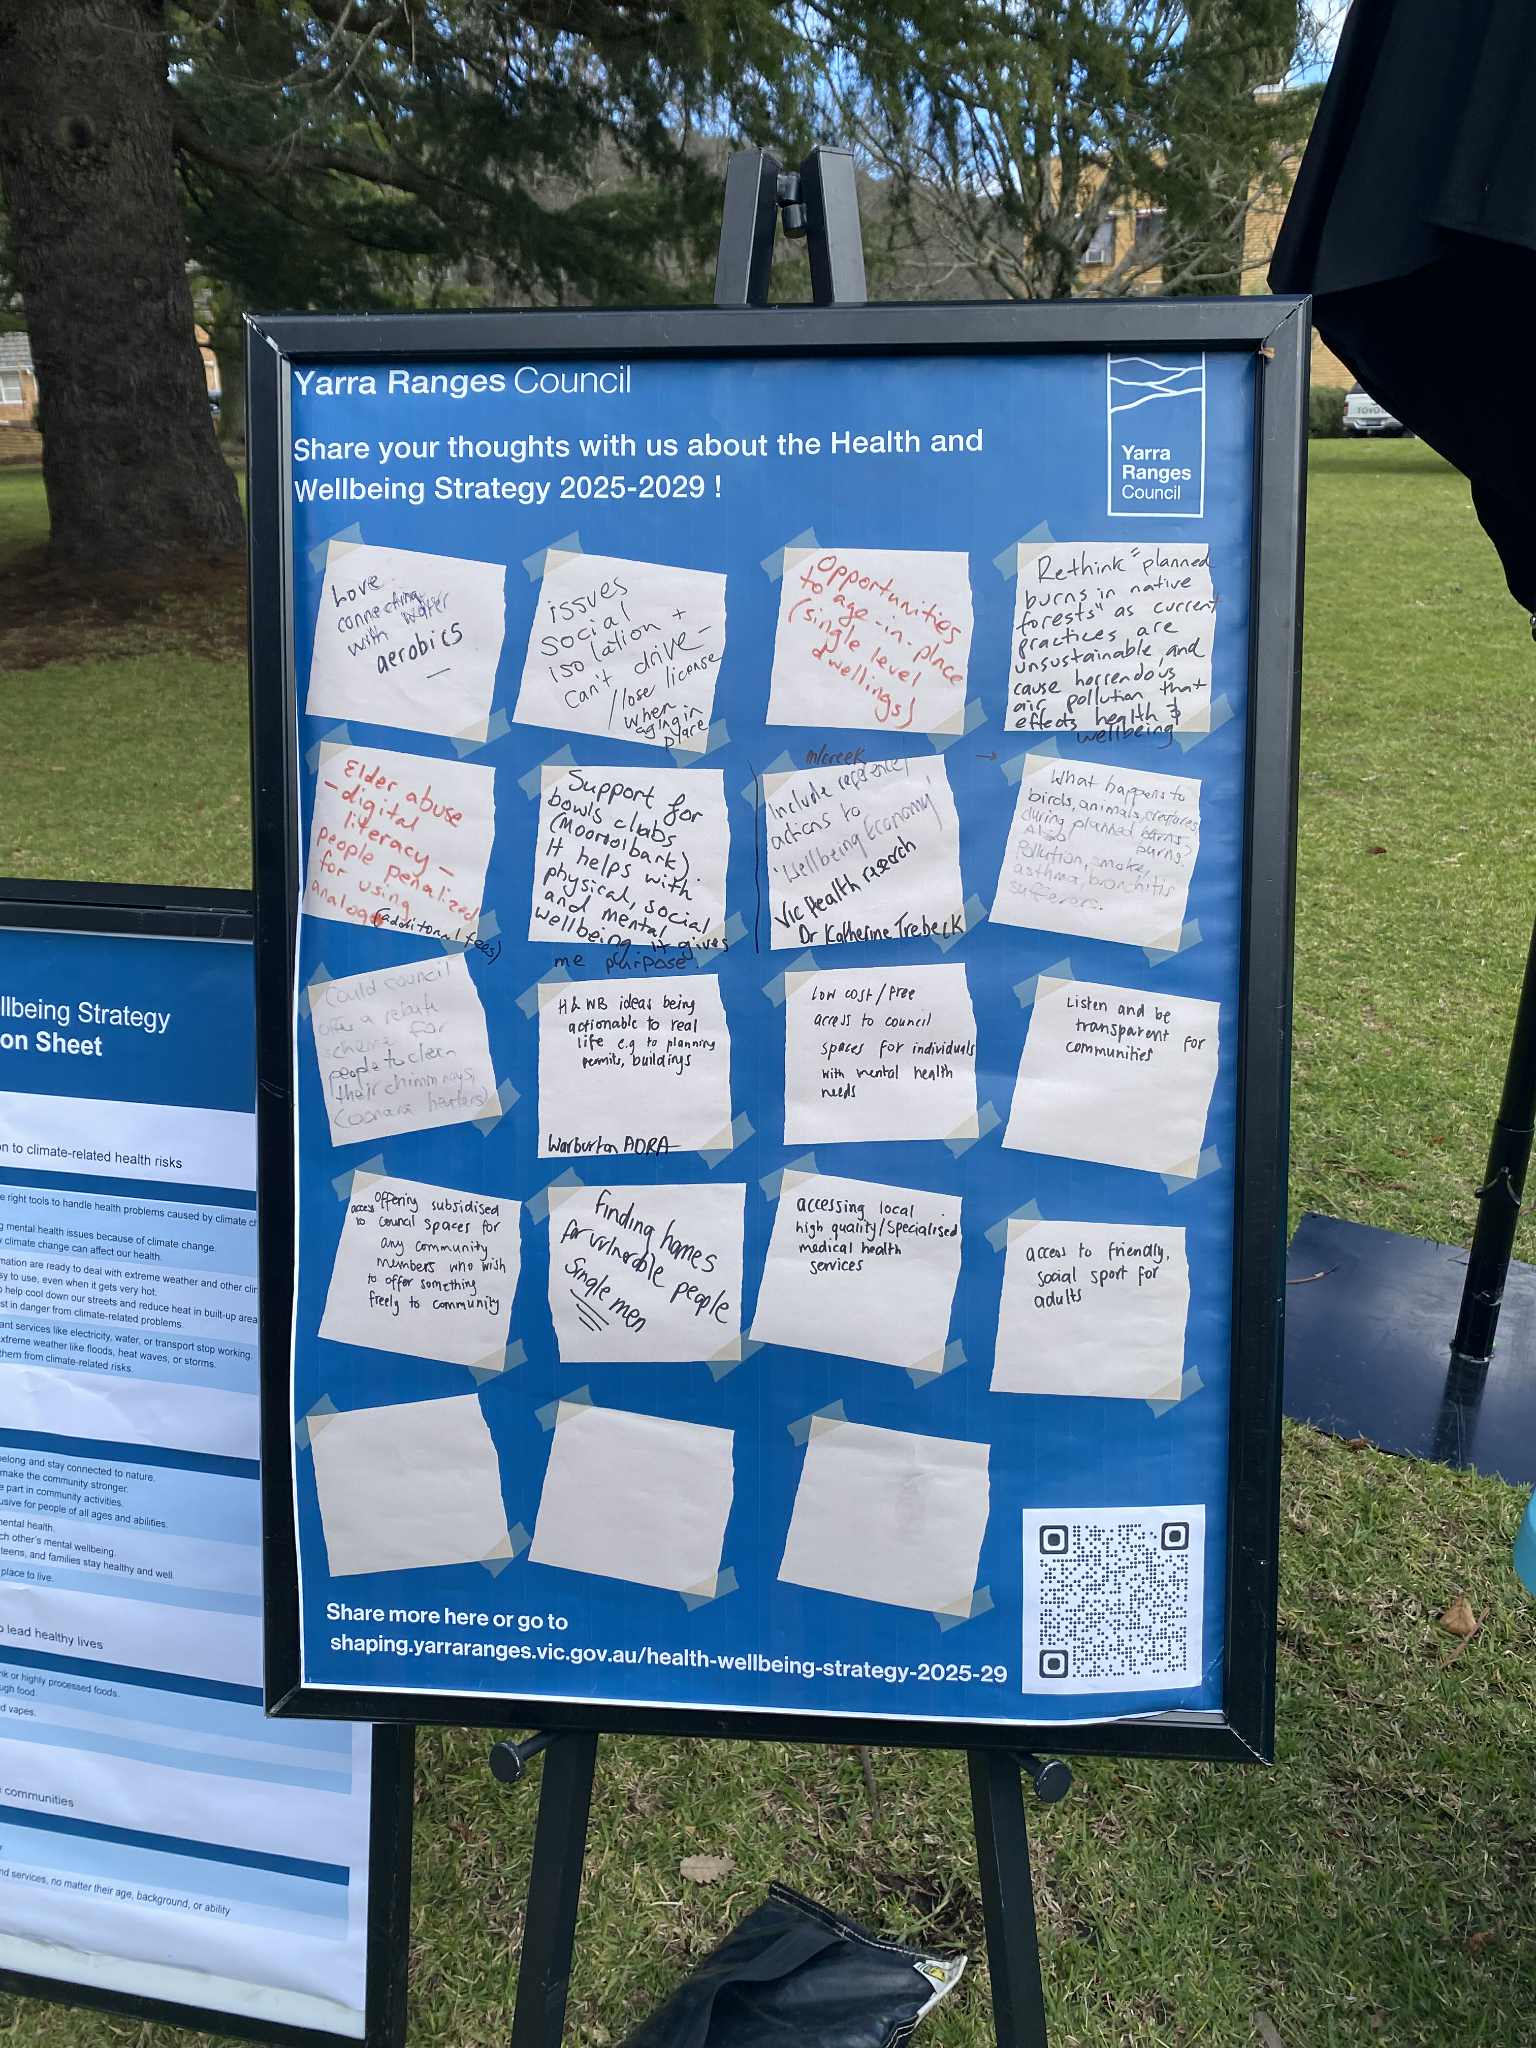 Yarra Ranges Council
Share your thoughts with us about the Health and
Wellbeing Strategy 2025-2029 !
Yarra
Ranges
Council
Love
connecting
with water
aerobics
issues
social
isolation +
can't drive –
/lose license
when
aging in
place
Opportunities
to age-in-place
(single level
dwellings)
Rethink "planned
burns in native
forests" as current
practices are
unsustainable, and
cause horrendous
air pollution that
effects health &
wellbeing
Elder abuse
– digital
literacy –
people penalized
for using
analog
(additional fees)
Support for
bowls clubs
(Mooroolbark).
It helps with
physical, social
and mental
wellbeing it gives
me purpose.
m/creek →
Include reference/
actions to
'Wellbeing Economy'
Vic Health research
Dr Katherine Trebeck
What happens to
birds, animals, creatures
during planned
burns?
Also
pollution, smoke,
asthma, bronchitis
sufferers.
Could council
offer a rebate
scheme for
people to clean
their chimnays,
(coonara heaters)
H & WB ideas being
actionable to real
life e.g to planning
permits, buildings
Warburton ADRA
Low cost/free
access to council
spaces for individuals
with mental health
needs
Listen and be
transparent for
communities
offering subsidised
access
to council spaces for
any community
members who wish
to offer something
freely to community
Finding homes
for vulnerable people
Single men
accessing local
high quality/specialised
medical health
services
access to friendly,
social sport for
adults
Share more here or go to
shaping.yarraranges.vic.gov.au/health-wellbeing-strategy-2025-29
llbeing Strategy
on Sheet
n to climate-related health risks
e right tools to handle health problems caused by climate
g mental health issues because of climate change.
y climate change can affect our health.
mation are ready to deal with extreme weather and other
sy to use, even when it gets very hot.
o help cool down our streets and reduce heat in built-up area
st in danger from climate-related problems.
ant services like electricity, water, or transport stop working.
xtreme weather like floods, heat waves, or storms.
them from climate-related risks.
belong and stay connected to nature.
make the community stronger.
e part in community activities.
usive for people of all ages and abilities.
ental health.
ch other's mental wellbeing.
teens, and families stay healthy and well
place to live.
o lead healthy lives
nk or highly processed foods.
ugh food.
d vapes.
communities
nd services, no matter their age, background, or ability